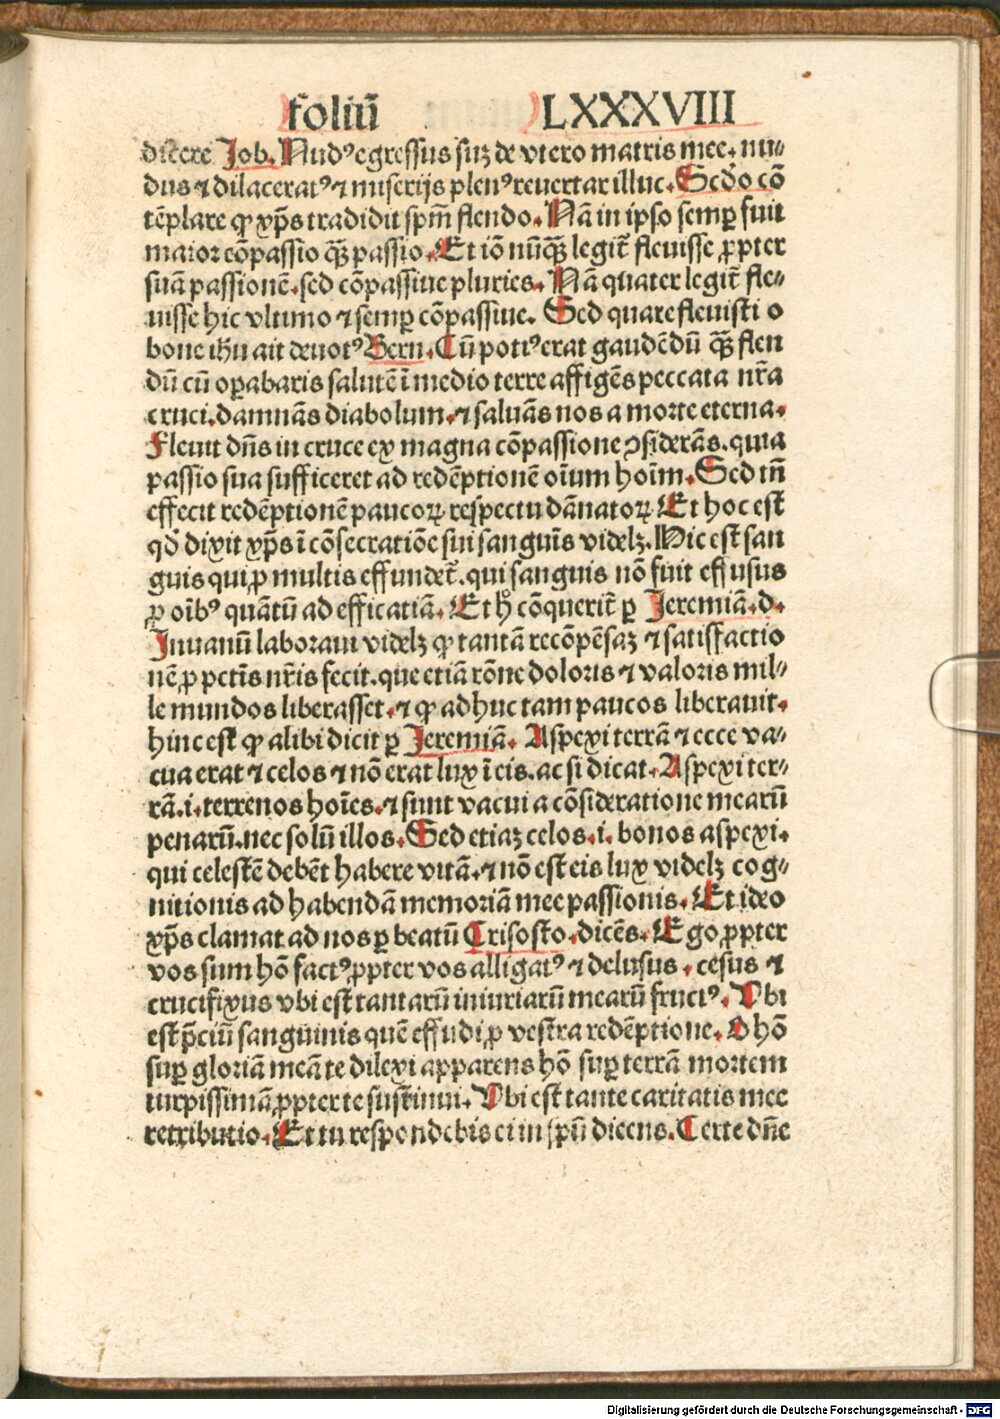 foliū LXXXVIII
dicere Job. Nudꝰ egressus suꝫ de vtero matris mee. nu⸗
dus ⁊ dilaceratꝰ ⁊ miserijs plenꝰ reuertar illuc. Scd̓o cō
tēplare ꝙ xp̄s tradidit sp̄m flendo. Nā in ipso semꝑ fuit
maior cōpassio qꝫ̄ passio. Et iō nūqꝫ̄ legit̄ fleuisse ꝓpter
suā passionē. sed cōpassiue pluries. Nā quater legit̄ fle⸗
uisse hic vltimo ⁊ semꝑ cōpassiue. Sed quare fleuisti o
bone ihū ait deuotꝰ Bern. Cū potiꝰ erat gaudēdū qꝫ̄ flen
dū cū oꝑabaris salutē ī medio terre affigēs peccata nr̄a
cruci. damnās diabolum. ⁊ saluās nos a morte eterna.
Fleuit dn̄s in cruce ex magna cōpassione ꝯsiderās. quia
passio sua sufficeret ad redēptionē oīum hoīm. Sed tn̄
effecit redēptionē paucoꝝ respectu dānatoꝝ Et hoc est
qd̓ dixit xp̄s ī cōsecratiōe sui sanguīs videlꝫ. Hic est san
guis qui ꝓ multis effundet̄. qui sanguis nō fuit effusus
ꝓ oībꝰ quātū ad efficatiā. Et hͦ cōquerit̄ ꝑ Jeremiā. d.
Jnuanū laboraui videlꝫ ꝙ tantā recōpēsaꝫ ⁊ satisfactio
nē ꝓ pctīs nr̄is fecit. que etiā rōne doloris ⁊ valoris mil⸗
le mundos liberasset. ⁊ ꝙ adhuc tam paucos liberauit.
hinc est ꝙ alibi dicit ꝑ Jeremiā. Aspexi terrā ⁊ ecce va⸗
cua erat ⁊ celos ⁊ nō erat lux ī eis. ac si dicat. Aspexi ter⸗
rā. i. terrenos hoīes. ⁊ sunt vacui a cōsideratione mearū
penarū. nec solū illos. Sed etiaꝫ celos. i. bonos aspexi.
qui celestē debēt habere vitā. ⁊ nō est eis lux videlꝫ cog⸗
nitionis ad habendā memoriā mee passionis. Et ideo
xp̄s clamat ad nos ꝑ beatū Crisosto. dicēs. Ego ꝓpter
vos sum hō factꝰ ꝓpter vos alligatꝰ ⁊ delusus. cesus ⁊
crucifixus vbi est tantarū iniuriarū mearū fructꝰ. Vbi
est p̄ciū sanguinis quē effudi ꝓ vestra redēptione. O hō
suꝑ gloriā meā te dilexi apparens hō suꝑ terrā mortem
turpissimā ꝓpter te sustinui. Vbi est tante caritatis mee
retributio. Et tu respondebis ei in sp̄u dicens. Certe dn̄e
Digitalisierung gefördert durch die Deutsche Forschungsgemeinschaft - DFG